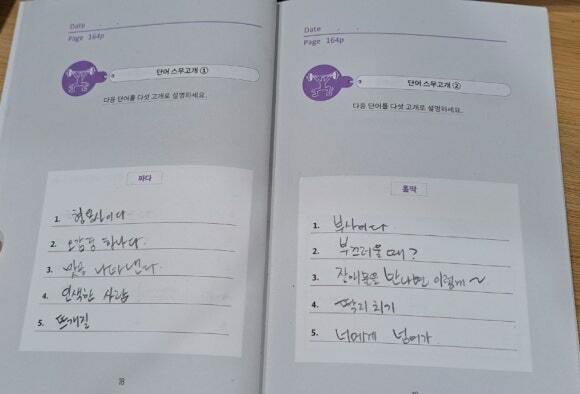 Date
Page 164p
단어 스무고개 ①
다음 단어를 다섯 고개로 설명하세요.
짜다
1. 형용사이다
2. 오감중 하나다.
3. 맛을 나타낸다
4. 인색한 사람
5. 뜨개질
18
Date
Page 164p
단어 스무고개 ②
다음 단어를 다섯 고개로 설명하세요.
홀딱
1. 부사이다
2. 부끄러울 때?
3. 장애물을 만나면 이렇게~
4. 딱지치기
5. 너에게 넘어가